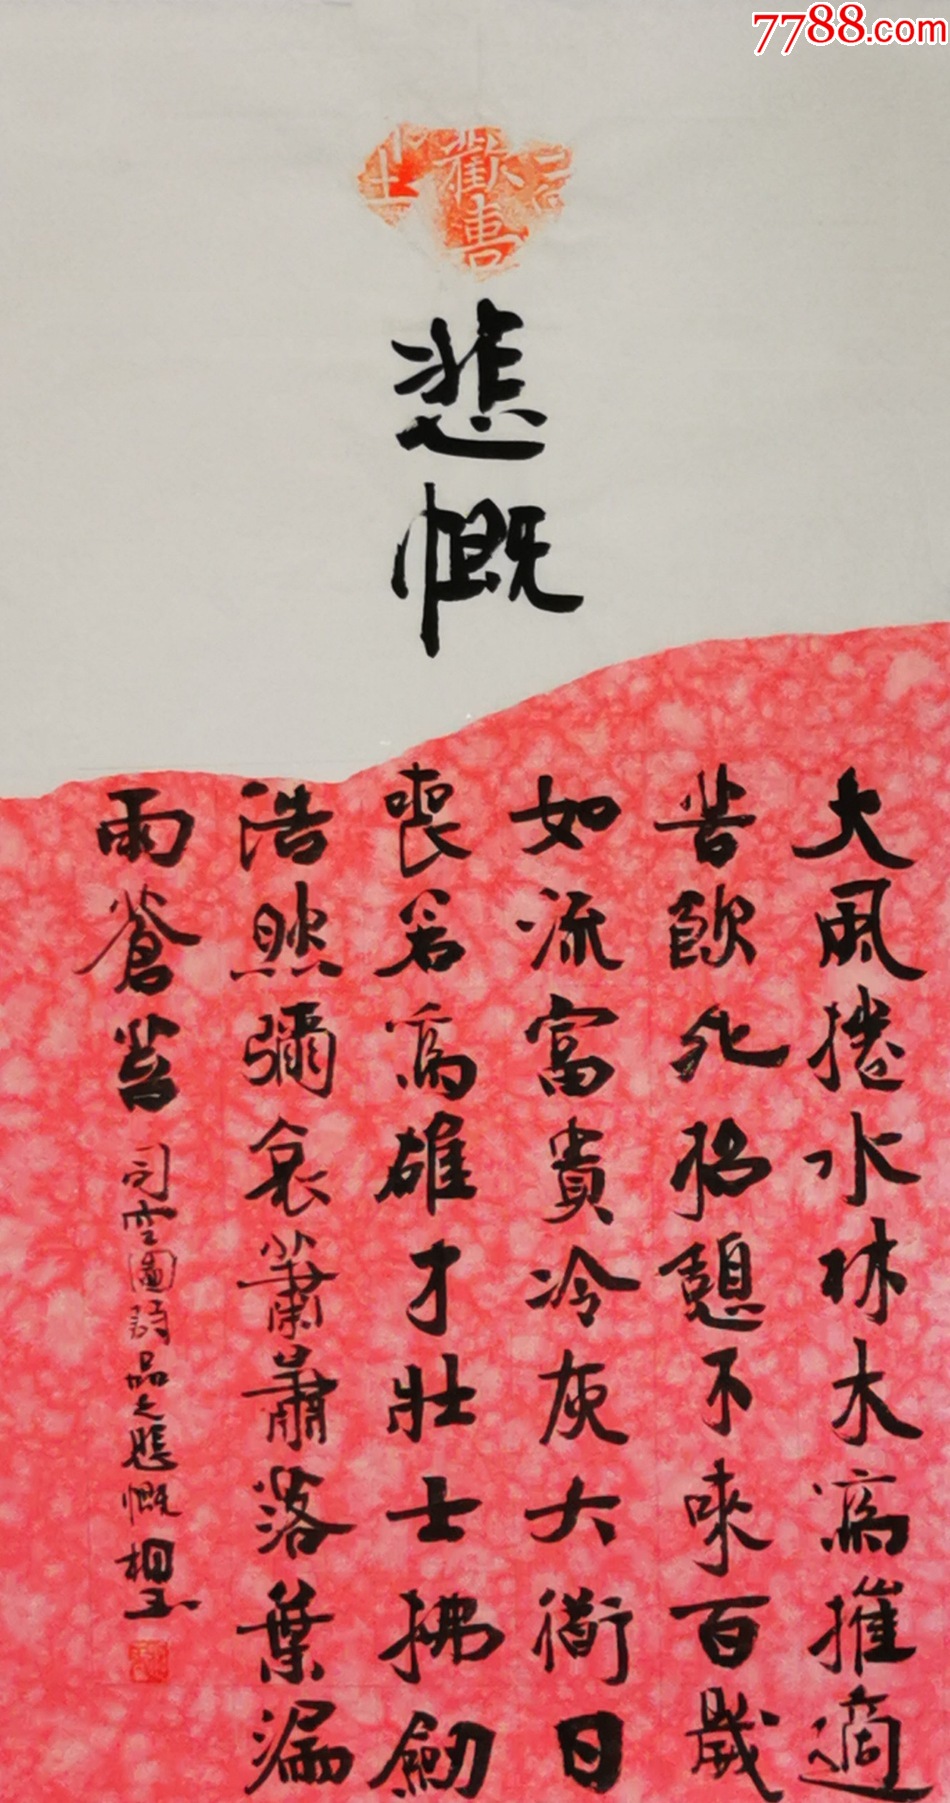 7788.com
歡喜
悲慨
大風捲水林木為摧適
苦欲死招憩不來百歲
如流富貴冷灰大衜日
喪若為雄才壯士拂劒
浩然彌哀蕭蕭落葉漏
雨蒼苔
司空圖詩品之悲慨